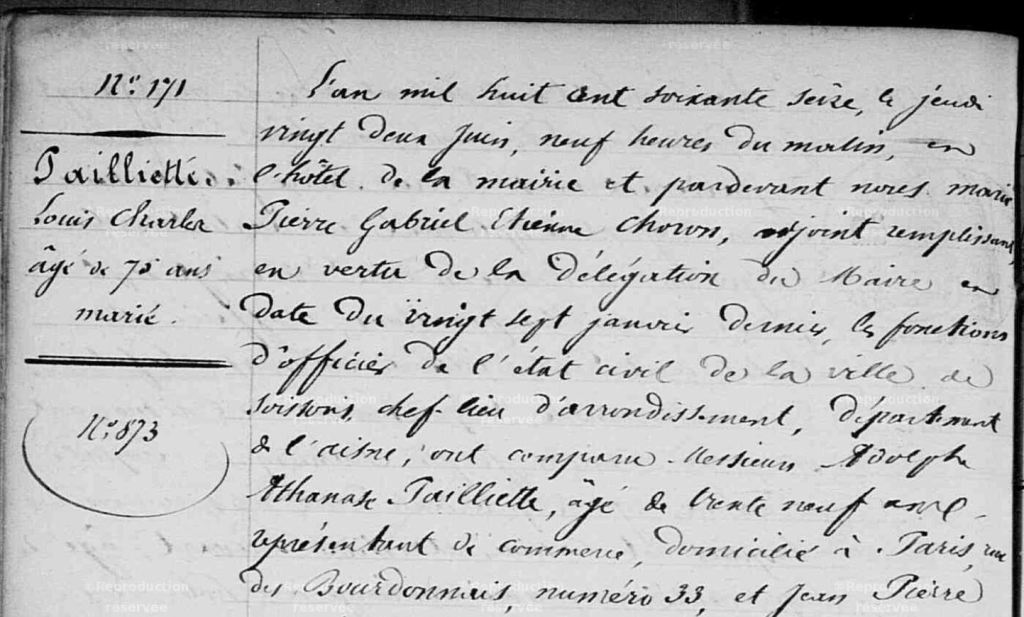 N° 171
Tailliette
Louis Charles
âgé de 75 ans
marié.
N° 873
L'an mil huit cent soixante seize, le jeudi
vingt deux Juin, neuf heures du matin, en
l'hôtel de la mairie et pardevant nous marie
Pierre Gabriel Etienne Choron, adjoint remplissant,
en vertu de la délégation du Maire en
date du vingt sept janvier dernier, les fonctions
d'officier de l'état civil de la ville de
Soissons, chef-lieu d'arrondissement, département
de l'aisne, ont comparu Messieurs Adolphe
Athanase Tailliette, âgé de trente neuf ans,
représentant de commerce, domicilié à Paris, rue
des Bourdonnais, numéro 33, et Jean Pierre
©Reproduction réservée